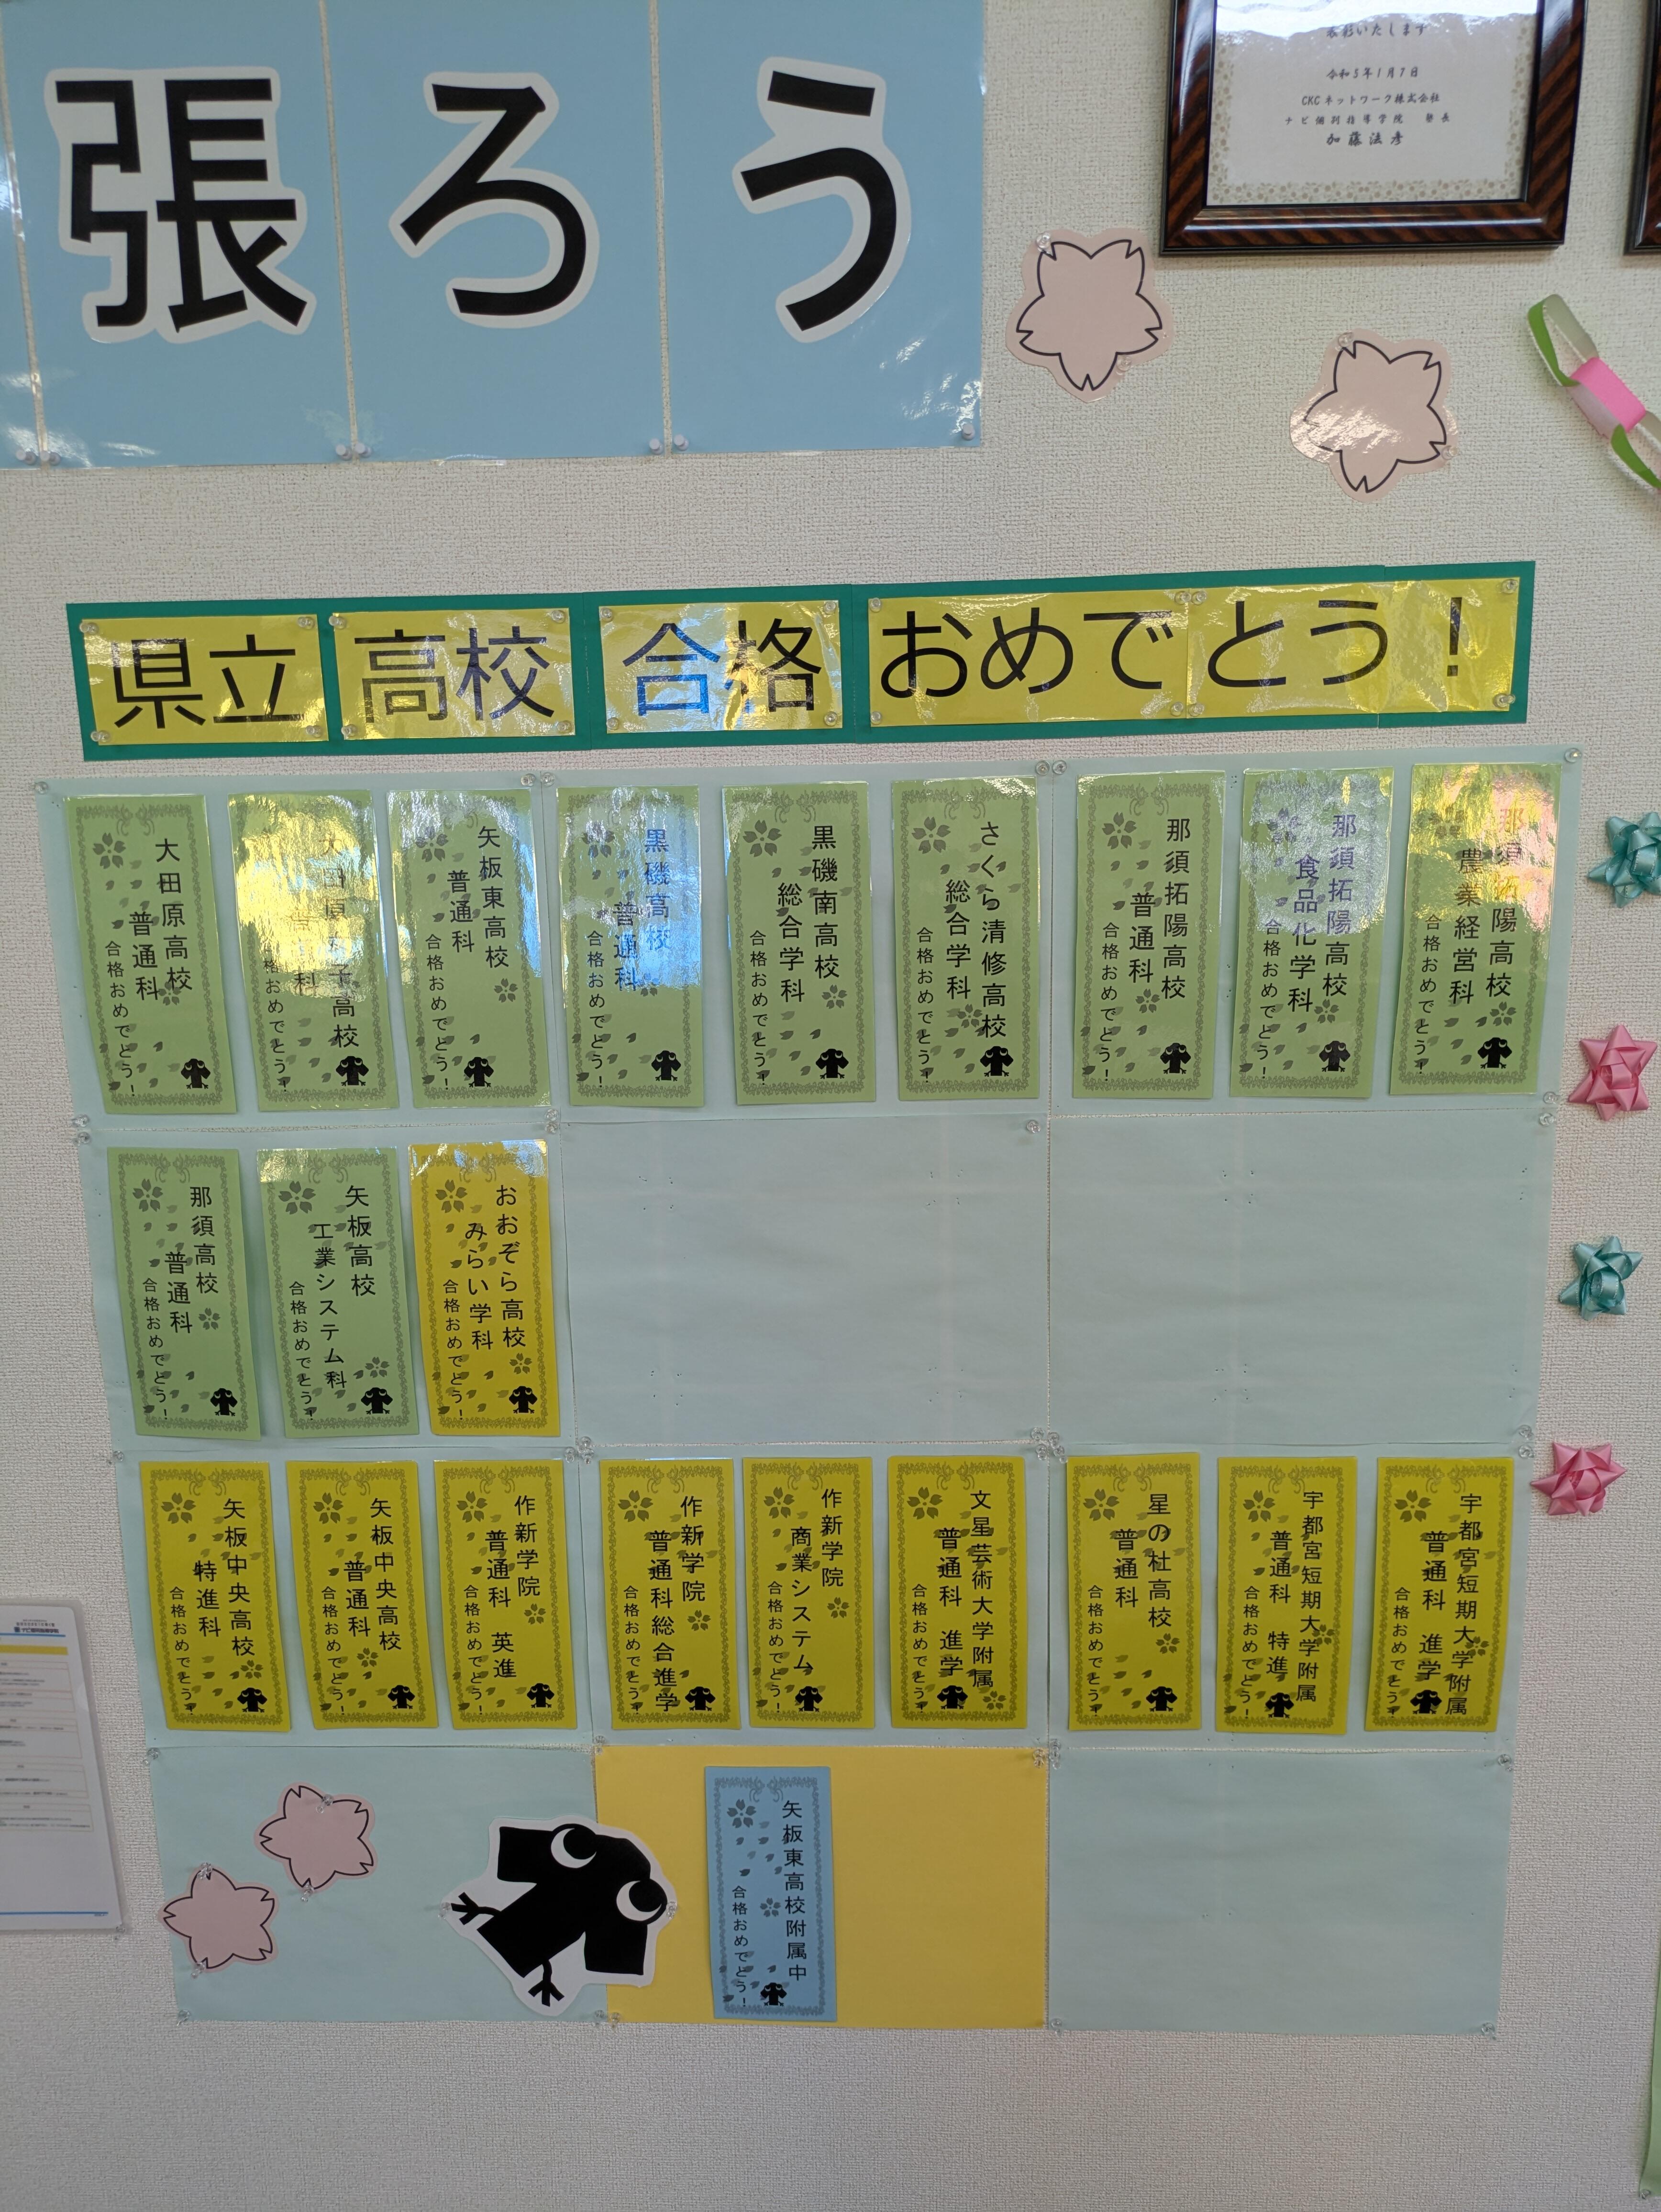 張ろう
表彰いたします
令和5年1月7日
CKCネットワーク株式会社
ナビ個別指導学院 塾長
加藤法彦
県立高校合格おめでとう！
大田原高校
普通科
合格おめでとう！
大田原女子高校
科
合格おめでとう！
矢板東高校
普通科
合格おめでとう！
黒磯高校
普通科
合格おめでとう！
黒磯南高校
総合学科
合格おめでとう！
さくら清修高校
総合学科
合格おめでとう！
那須拓陽高校
普通科
合格おめでとう！
那須拓陽高校
食品化学科
合格おめでとう！
那須拓陽高校
農業経営科
合格おめでとう！
那須高校
普通科
合格おめでとう！
矢板高校
工業システム科
合格おめでとう！
おおぞら高校
みらい学科
合格おめでとう！
矢板中央高校
特進科
合格おめでとう！
矢板中央高校
普通科
合格おめでとう！
作新学院
普通科 英進
合格おめでとう！
作新学院
普通科総合進学
合格おめでとう！
作新学院
商業システム
合格おめでとう！
文星芸術大学附属
普通科 進学
合格おめでとう！
星の杜高校
普通科
合格おめでとう！
宇都宮短期大学附属
普通科 特進
合格おめでとう！
宇都宮短期大学附属
普通科 進学
合格おめでとう！
矢板東高校附属中
合格おめでとう！